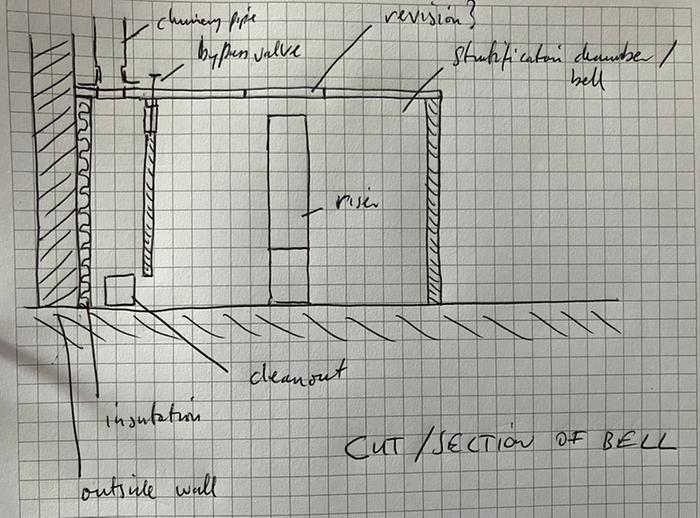 chimney pipe
revision?
bypass valve
stratification chamber /
bell
riser
cleanout
insulation
CUT/SECTION OF BELL
outside wall